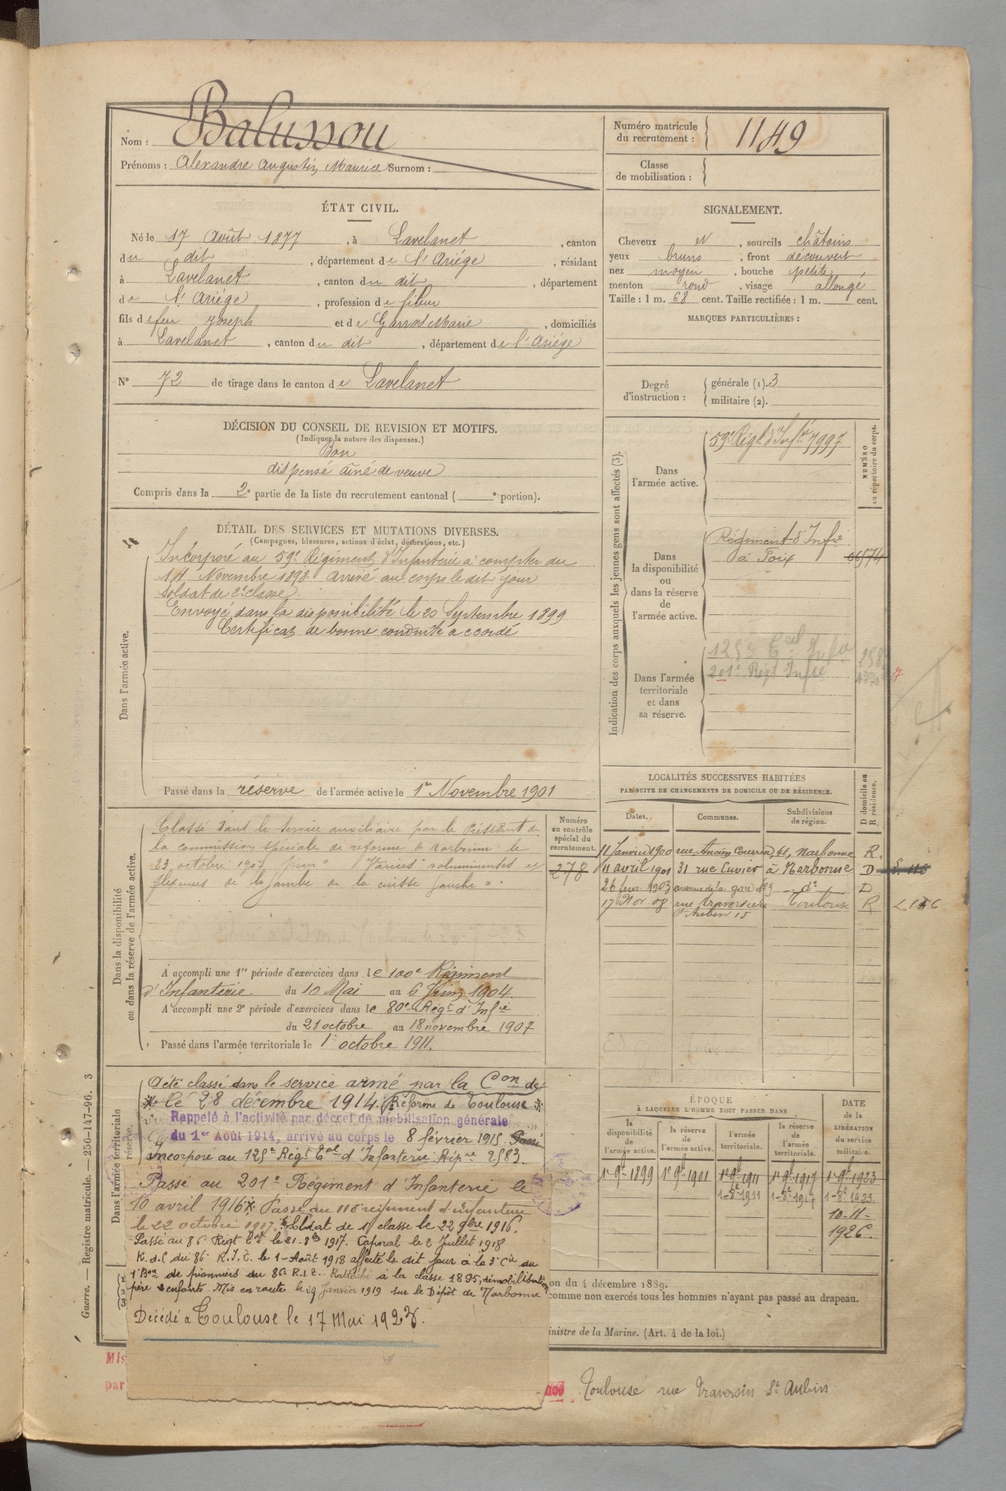 Nom : Balussou
Prénoms : Alexandre Augustin Maurice Surnom :
Numéro matricule du recrutement : 1149
Classe de mobilisation :
ÉTAT CIVIL.
Né le 17 Août 1877, à Lavelanet, canton
du dit, département de l'Ariège, résidant
à Lavelanet, canton du dit, département
de l'Ariège, profession de fileur
fils de feu Joseph et de Garros Marie, domiciliés
à Lavelanet, canton du dit, département de l'Ariège
N° 72 de tirage dans le canton de Lavelanet
SIGNALEMENT.
Cheveux et, sourcils châtains
yeux bruns, front découvert
nez moyen, bouche petite
menton rond, visage allongé
Taille : 1 m. 68 cent. Taille rectifiée : 1 m. cent.
MARQUES PARTICULIÈRES :
Degré d'instruction : générale (1). 3
militaire (2).
DÉCISION DU CONSEIL DE REVISION ET MOTIFS.
(Indiquer la nature des dispenses.)
Bon
dispensé aîné de veuve
Compris dans la 2e partie de la liste du recrutement cantonal ( e portion).
DÉTAIL DES SERVICES ET MUTATIONS DIVERSES.
(Campagnes, blessures, actions d'éclat, décorations, etc.)
Dans l'armée active.
Incorporé au 59e Régiment d'Infanterie à compter du
14 Novembre 1898 arrivé au corps le dit jour
soldat de 2e classe.
Envoyé dans la disponibilité le 20 Septembre 1899
Certificat de bonne conduite accordé
Passé dans la réserve de l'armée active le 1er Novembre 1901
Indication des corps auxquels les jeunes gens sont affectés (3).
NUMÉRO au répertoire du corps.
Dans l'armée active.
59e Régt d'Infie 7997
Dans la disponibilité ou dans la réserve de l'armée active.
Régiment d'Infie
à Foix
Dans l'armée territoriale et dans sa réserve.
125e Ral Infie
201e Régt Infie
Dans la disponibilité ou dans la réserve de l'armée active.
Classé dans le service auxiliaire par le Président de
la commission spéciale de réforme de Narbonne le
23 octobre 1907 pour "Varices volumineuses et
flexueuses de la jambe de la cuisse gauche".
Numéro au contrôle spécial du recrutement.
278
A accompli une 1re période d'exercices dans le 100e Régiment
d'Infanterie du 10 Mai au 6 Juin 1904.
A accompli une 2e période d'exercices dans le 80e Régt d'Infie
du 21 octobre au 18 novembre 1907
Passé dans l'armée territoriale le 1er octobre 1911.
LOCALITÉS SUCCESSIVES HABITÉES
PAR SUITE DE CHANGEMENTS DE DOMICILE OU DE RÉSIDENCE.
Dates. Communes. Subdivisions de région. D domicile ou R résidence.
11 Janvier 1900 61, Narbonne R.
11 avril 1901 31 rue Cuvier à Narbonne D
26 févr 1903 avenue de la gare do D
17 Nov 08 rue traversière St Aubin 15 Toulouse R
Dans l'armée territoriale
A été classé dans le service armé par la Con de
le 28 décembre 1914. (Réforme de Toulouse
Rappelé à l'activité par décret de mobilisation générale
du 1er Août 1914, arrivé au corps le 8 février 1915
Incorporé au 125e Régt d'Infanterie. Répre 2583.
Passé au 201e Régiment d'Infanterie le
10 avril 1916. Passé au 116e régiment d'infanterie
le 22 octobre 1917. Soldat de 1e classe le 22 9bre 1916.
Passé au 86e Régt le 21-8bre 1917. Caporal le 2 Juillet 1918
du 86e R.I.T. le 1-Août 1918 affecté le dit jour à la 3e Cie du
1er Bon de pionniers du 86e R.I.T. Rattaché à la classe 1895, démobilisation
père enfants Mis en route le 29 Janvier 1919 sur le Dépôt de Narbonne
Décédé à Toulouse le 17 Mai 1926.
ÉPOQUE
À LAQUELLE L'HOMME DOIT PASSER DANS
la disponibilité de l'armée active. la réserve de l'armée active. l'armée territoriale. la réserve de l'armée territoriale. DATE de la LIBÉRATION du service militaire.
1er 9bre 1899 1er 9bre 1901 1er 9bre 1911 1er 9bre 1917 1er 9bre 1923
10-11-
1926.
on du 4 décembre 1889.
comme non exercés tous les hommes n'ayant pas passé au drapeau.
inistre de la Marine. (Art. 4 de la loi.)
Guerre. — Registre matricule. — 256-147-96. 3
Mis
par
Toulouse rue Traversin St Aubin